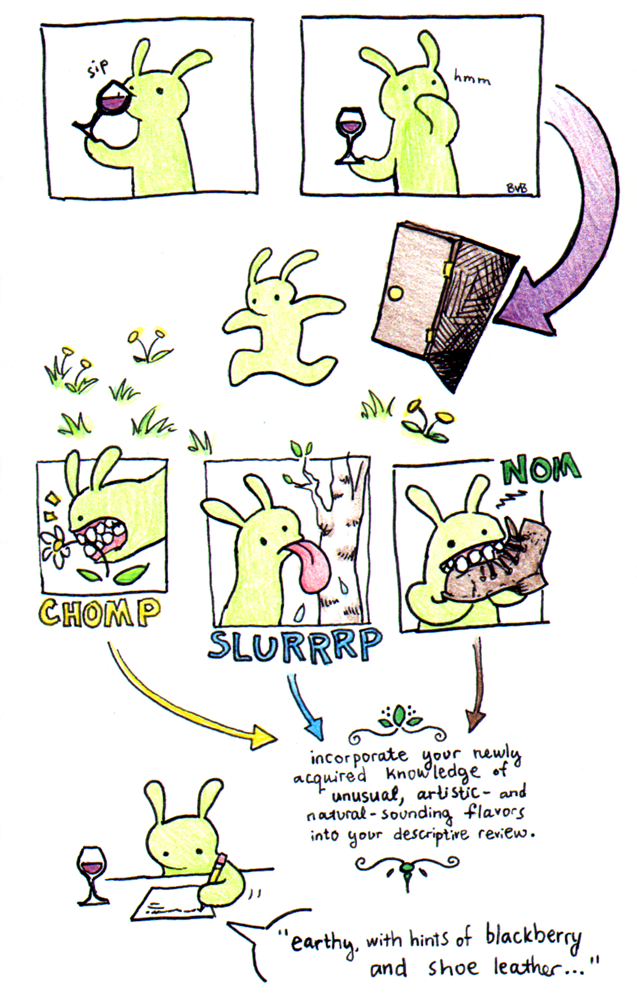 sip
hmm
BvB
NOM
CHOMP
SLURRRP
incorporate your newly
acquired knowledge of
unusual, artistic- and
natural-sounding flavors
into your descriptive review.
"earthy, with hints of blackberry
and shoe leather..."